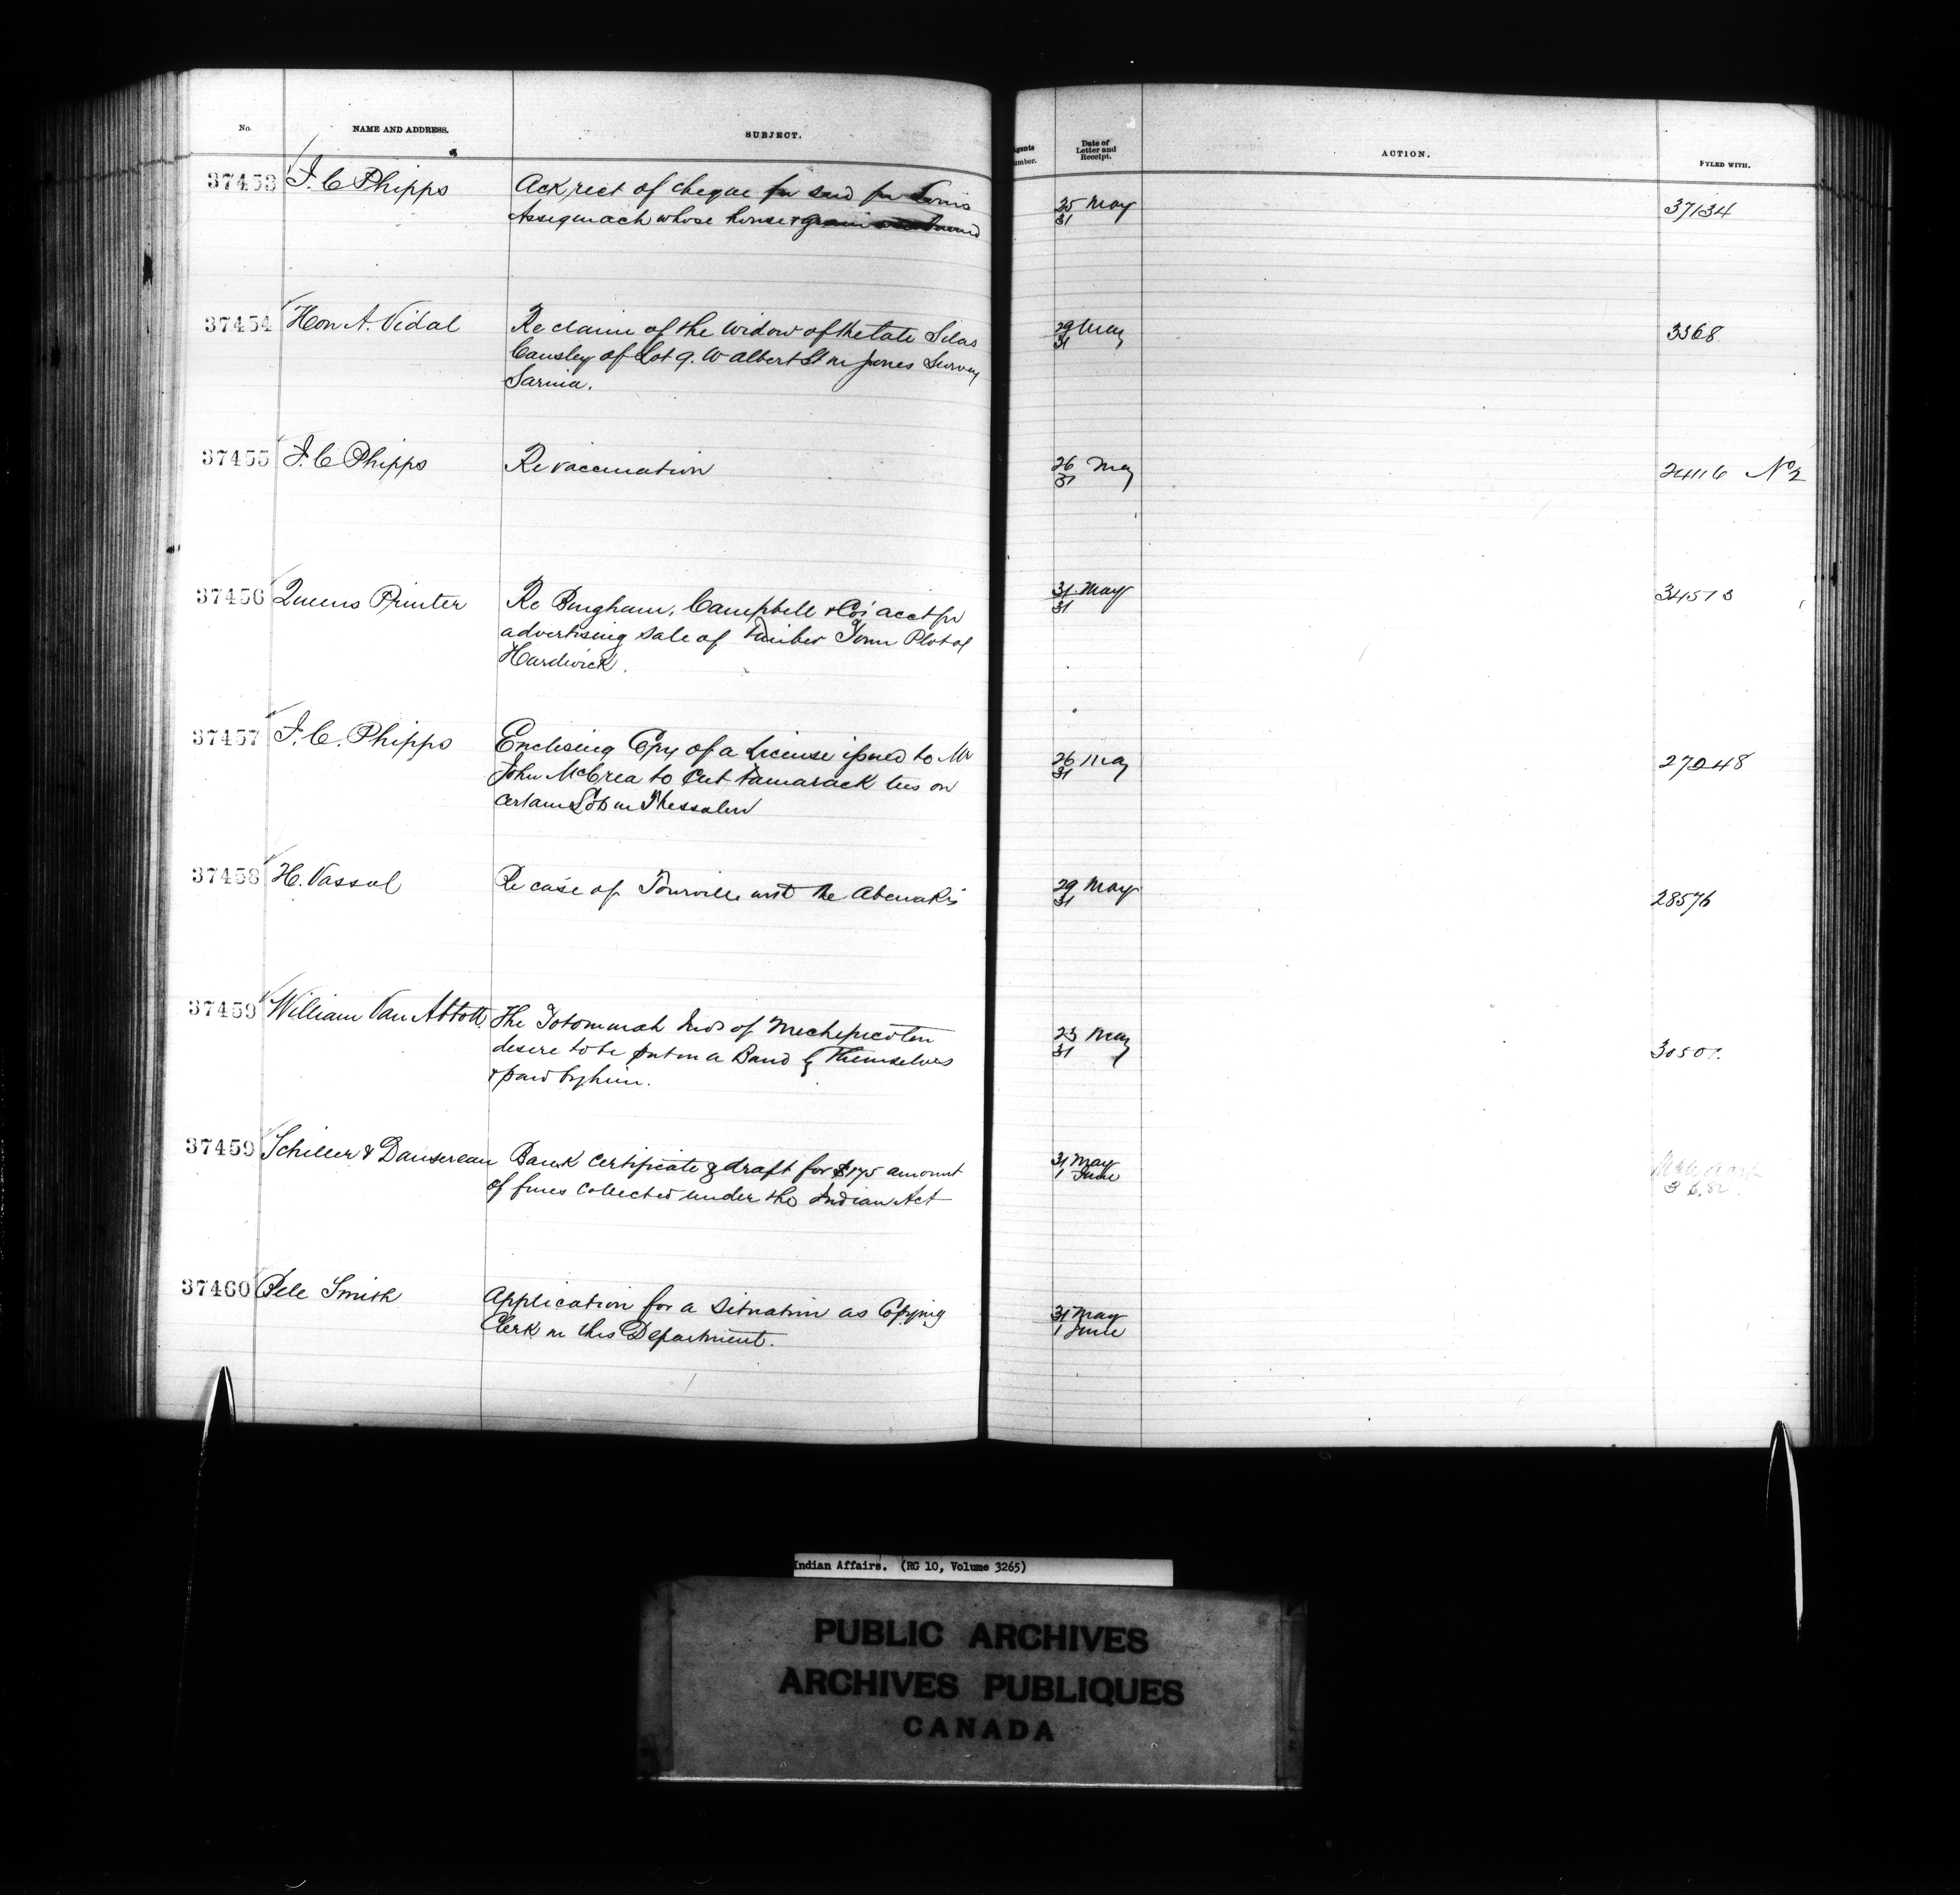 No. NAME AND ADDRESS. SUBJECT. Agents Number. Date of Letter and Receipt. ACTION. FYLED WITH.
37453 J. C Phipps Ack rect of cheque for seed for Louis 25 May 37134
Assiginack whose house & grain was burned 31
37454 Hon A. Vidal Re claim of the widow of the late Silas 29 May 3368
Causley of Lot 9. W Albert St in Jones Survey 31
Sarnia.
37455 J. C Phipps Re vaccination 26 May 24116 No 2
31
37456 Queens Printer Re Bingham, Campbell & Co's acct for 31 May 34573
advertising sale of timber Town Plot of 31
Hardwick.
37457 J. C. Phipps Enclosing Copy of a License issued to Mr 26 May 27248
John McCrea to cut tamarack ties on 31
certain Lots in Thessalon
37458 H. Vassal Re case of Tourville with the Abenakis 29 May 28576
31
37459 William Van Abbott The Inds of Michipicoten 23 May
desire to be put in a Band by themselves 31
& paid by him.
37459 Schiller & Dansereau Bank certificate & draft for $175 amount 31 May
of fines collected under the Indian Act 1 June
37460 Pele Smith Application for a situation as Copying 31 May
Clerk in this Department. 1 June
Indian Affairs. (RG 10, Volume 3265)
PUBLIC ARCHIVES
ARCHIVES PUBLIQUES
CANADA